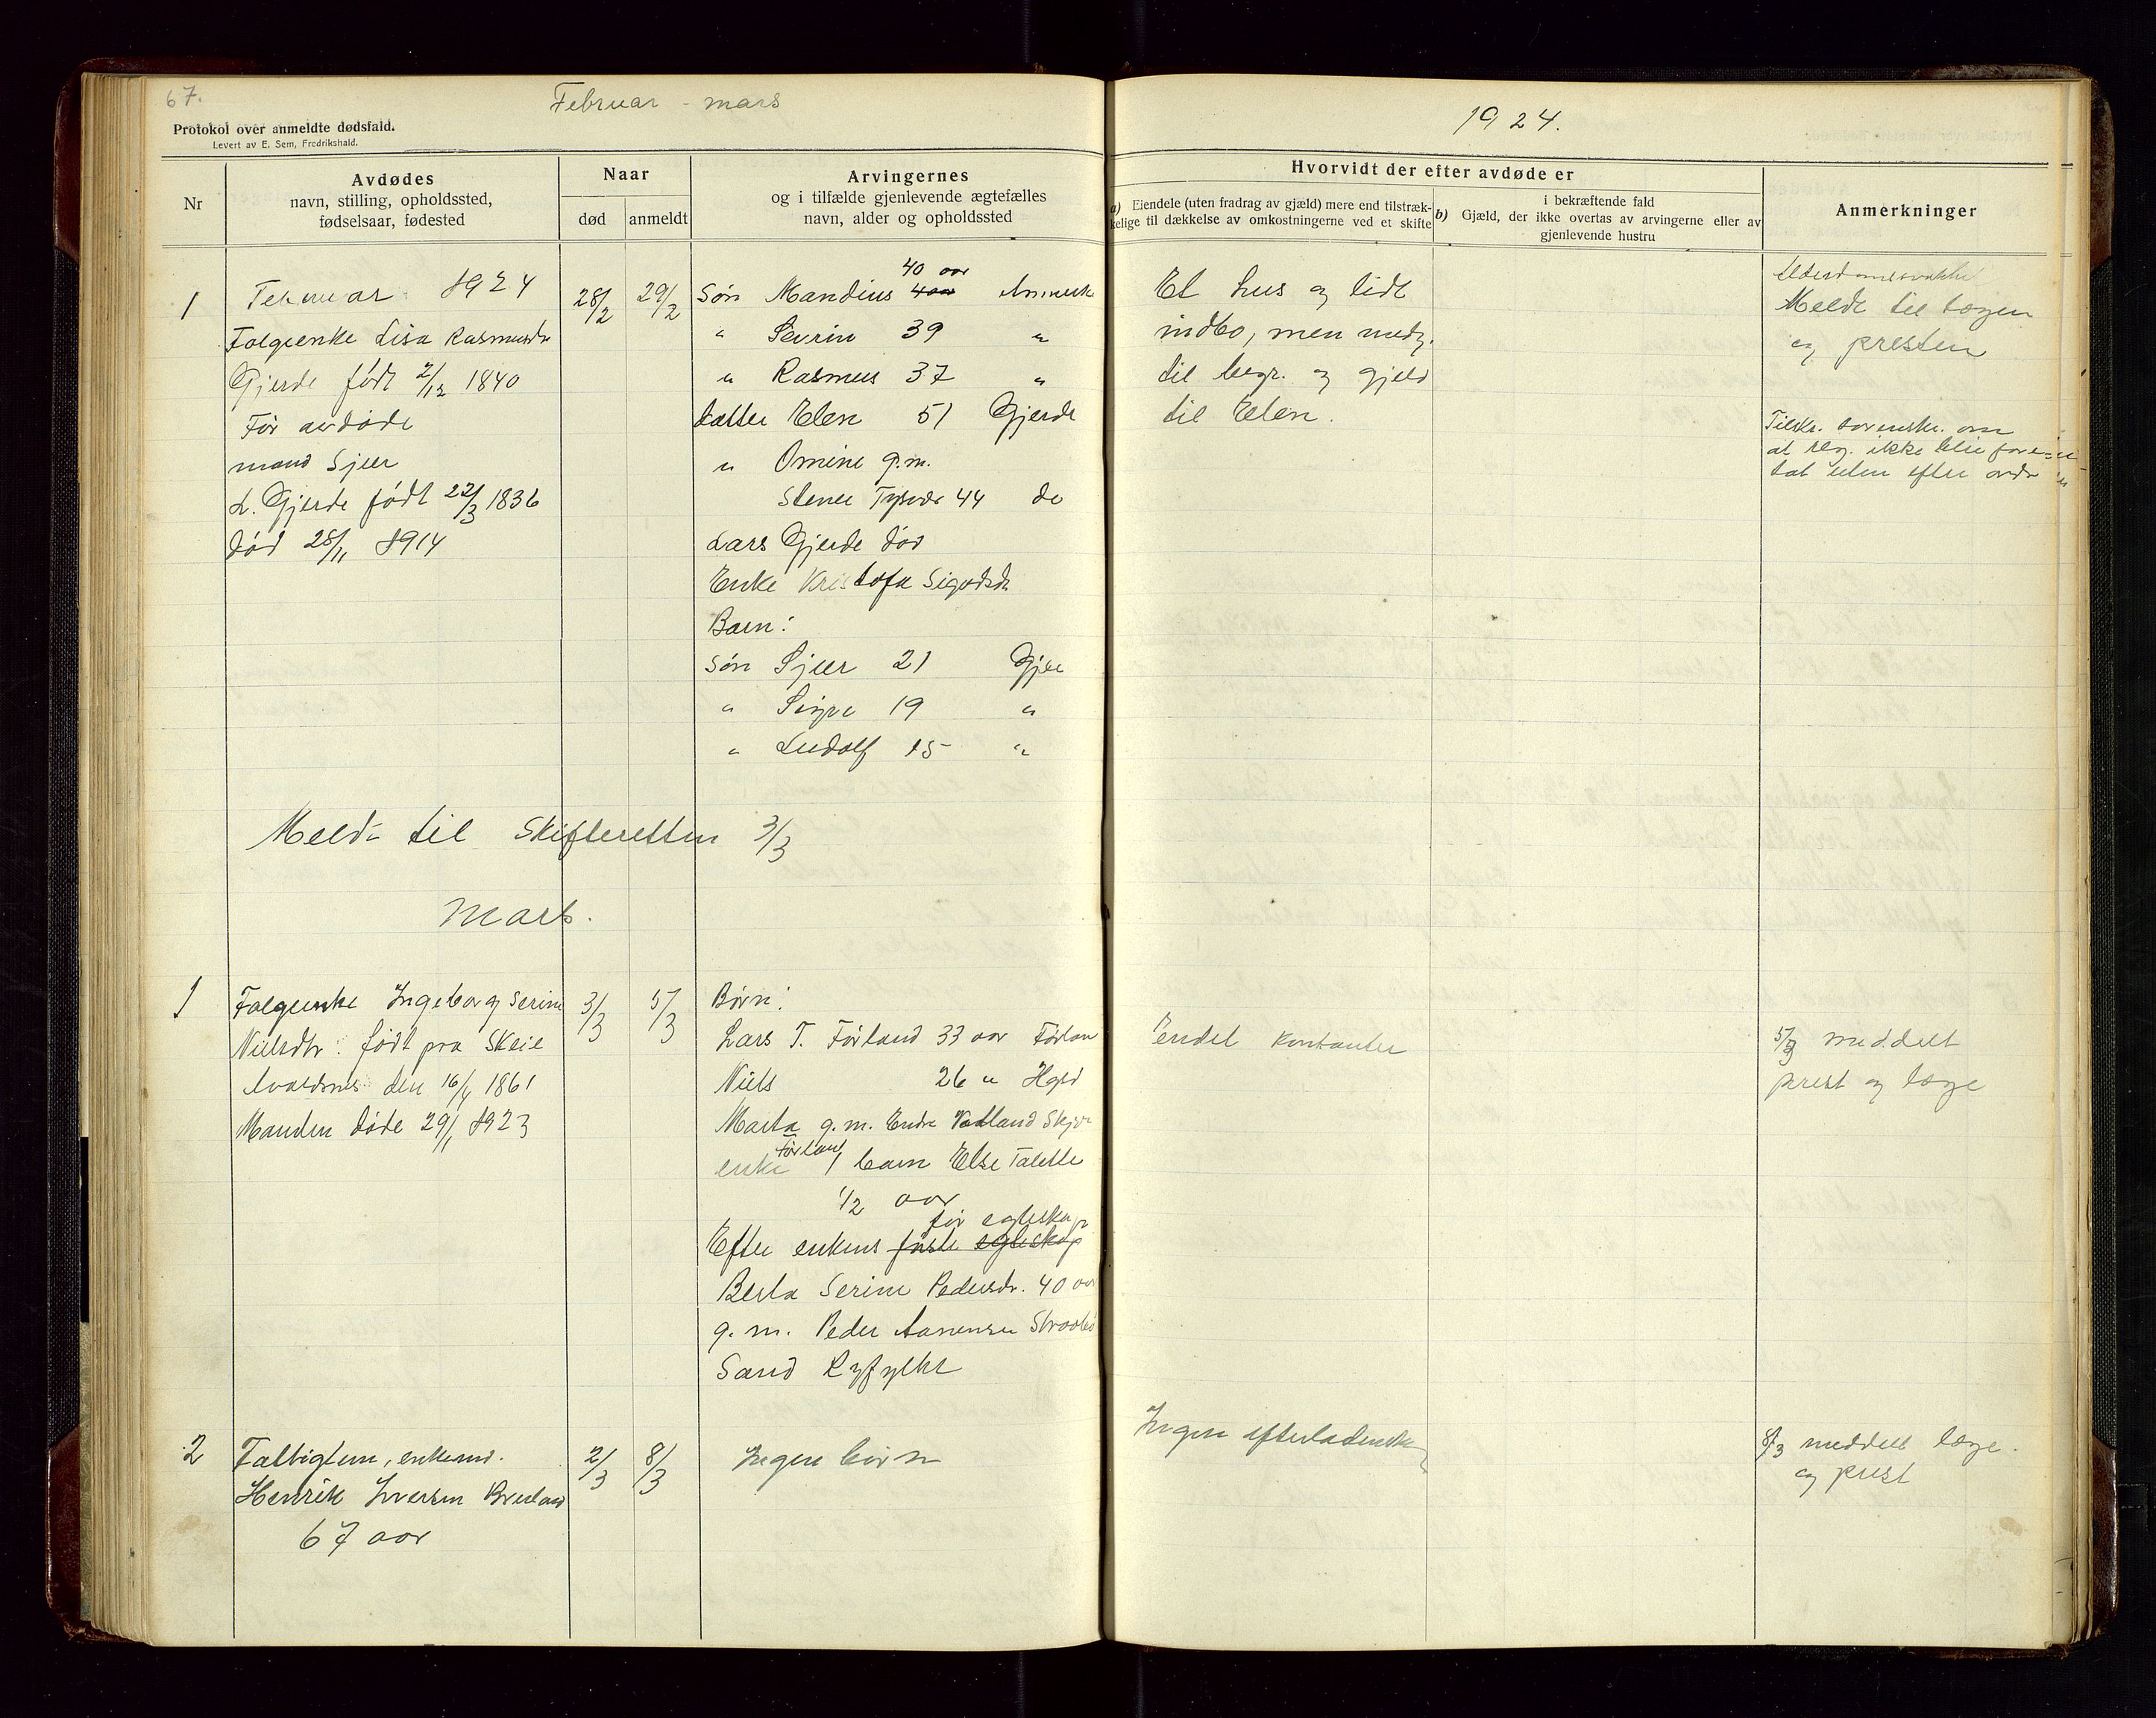 67.
Februar - mars
1924.
Protokol over anmeldte dødsfald.
Levert av E. Sem, Fredrikshald.
Nr
Avdødes
navn, stilling, opholdssted,
fødselsaar, fødested
Naar
død
anmeldt
Arvingernes
og i tilfælde gjenlevende ægtefælles
navn, alder og opholdssted
Hvorvidt der efter avdøde er
a) Eiendele (uten fradrag av gjæld) mere end tilstræk-
kelige til dækkelse av omkostningerne ved et skifte
b) i bekræftende fald
Gjæld, der ikke overtas av arvingerne eller av
gjenlevende hustru
Anmerkninger
1
Februar 1924
Folgeenke Lisa Rasmusdr
Gjerde født 2/12 1840
Før avdøde
mand Sjur
L. Gjerde født 22/3 1836
død 28/11 1914
28/2
29/2
40 aar
Søn Mandius
" Sevrin 39 "
" Rasmus 37 "
datter Elen 51 Gjerde
" Omine g.m.
44 do
Lars Gjerde død
Enke Kristofa
Barn:
Søn Sjur 21
" 19 "
" Ludolf 15 "
Et hus og lidt
indbo, men medg.
til begr. og gjeld
til Elen.
Meldt til
og presten
at reg. ikke blir
Meldt til Skifteretten 3/3
Mars.
1
Folgeenke Ingeborg Serine
Nielsdtr. født paa Skeie
Avaldsnes den 16/4 1861
Manden døde 29/1 1923
3/3
5/3
Børn:
Lars T. Førland 33 aar Førlan
Niels 26 " Hgsd
Marta g.m. Endre
enke Førland 1 barn Else
1/2 aar
før egteskap
Efter enkens første egteskap
Berta Serine Pedersdr. 40 aar
g. m. Peder
Sand Ryfylke
Endel kontanter
5/3 meddelt
prest og læge
2
enkemd.
Henrik Iversen
67 aar
2/3
8/3
Ingen børn
Ingen
8/3 meddelt læge.
og prest